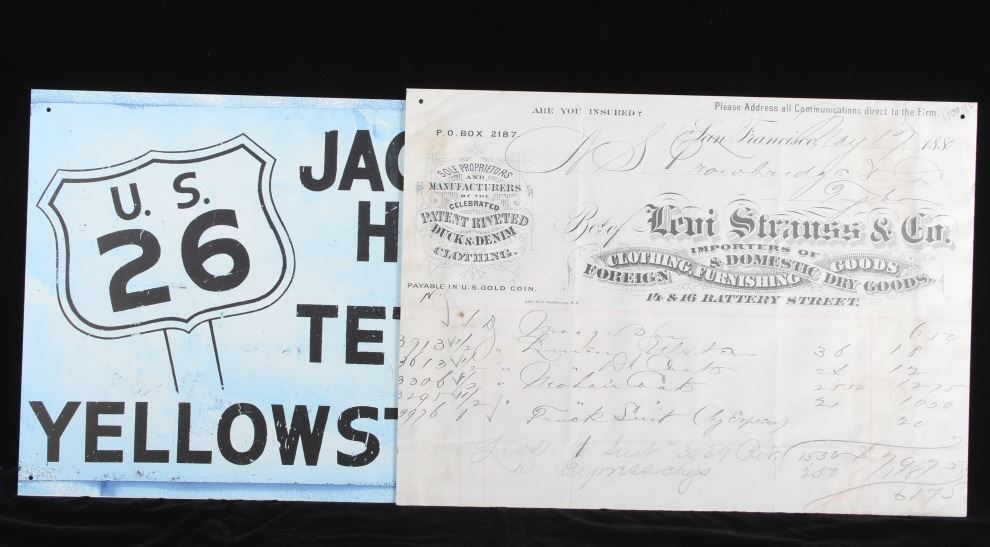 U. S.
26
JAC
H
TET
YELLOWST
ARE YOU INSURED?
Please Address all Communications direct to the Firm.
P.O. BOX 2187.
San Francisco, May 188
SOLE PROPRIETORS
AND
MANUFACTURERS
OF THE
CELEBRATED
PATENT RIVETED
DUCK & DENIM
CLOTHING.
Bot. of Levi Strauss & Co.
IMPORTERS OF
CLOTHING, FURNISHING & DOMESTIC GOODS,
FOREIGN DRY GOODS.
14 & 16 BATTERY STREET.
PAYABLE IN U.S. GOLD COIN.
6 50
3913 1/2 " 36 18
3613 1/2 " 24 12
3306 1/2 " Mohair Coats 25 50 12 75
3295 1/2 " 21 10 50
3976 1 Suit (by Express) 20
Less 1 Suit 3939 Ret. 15 50
" Express chgs 2 50
61 75